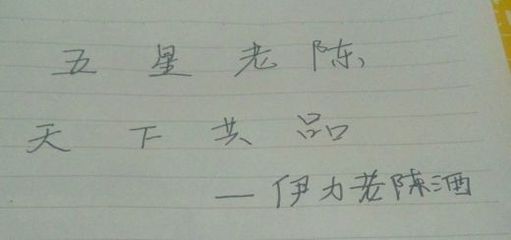 五星老陈,
天下共品
—伊力老陈酒